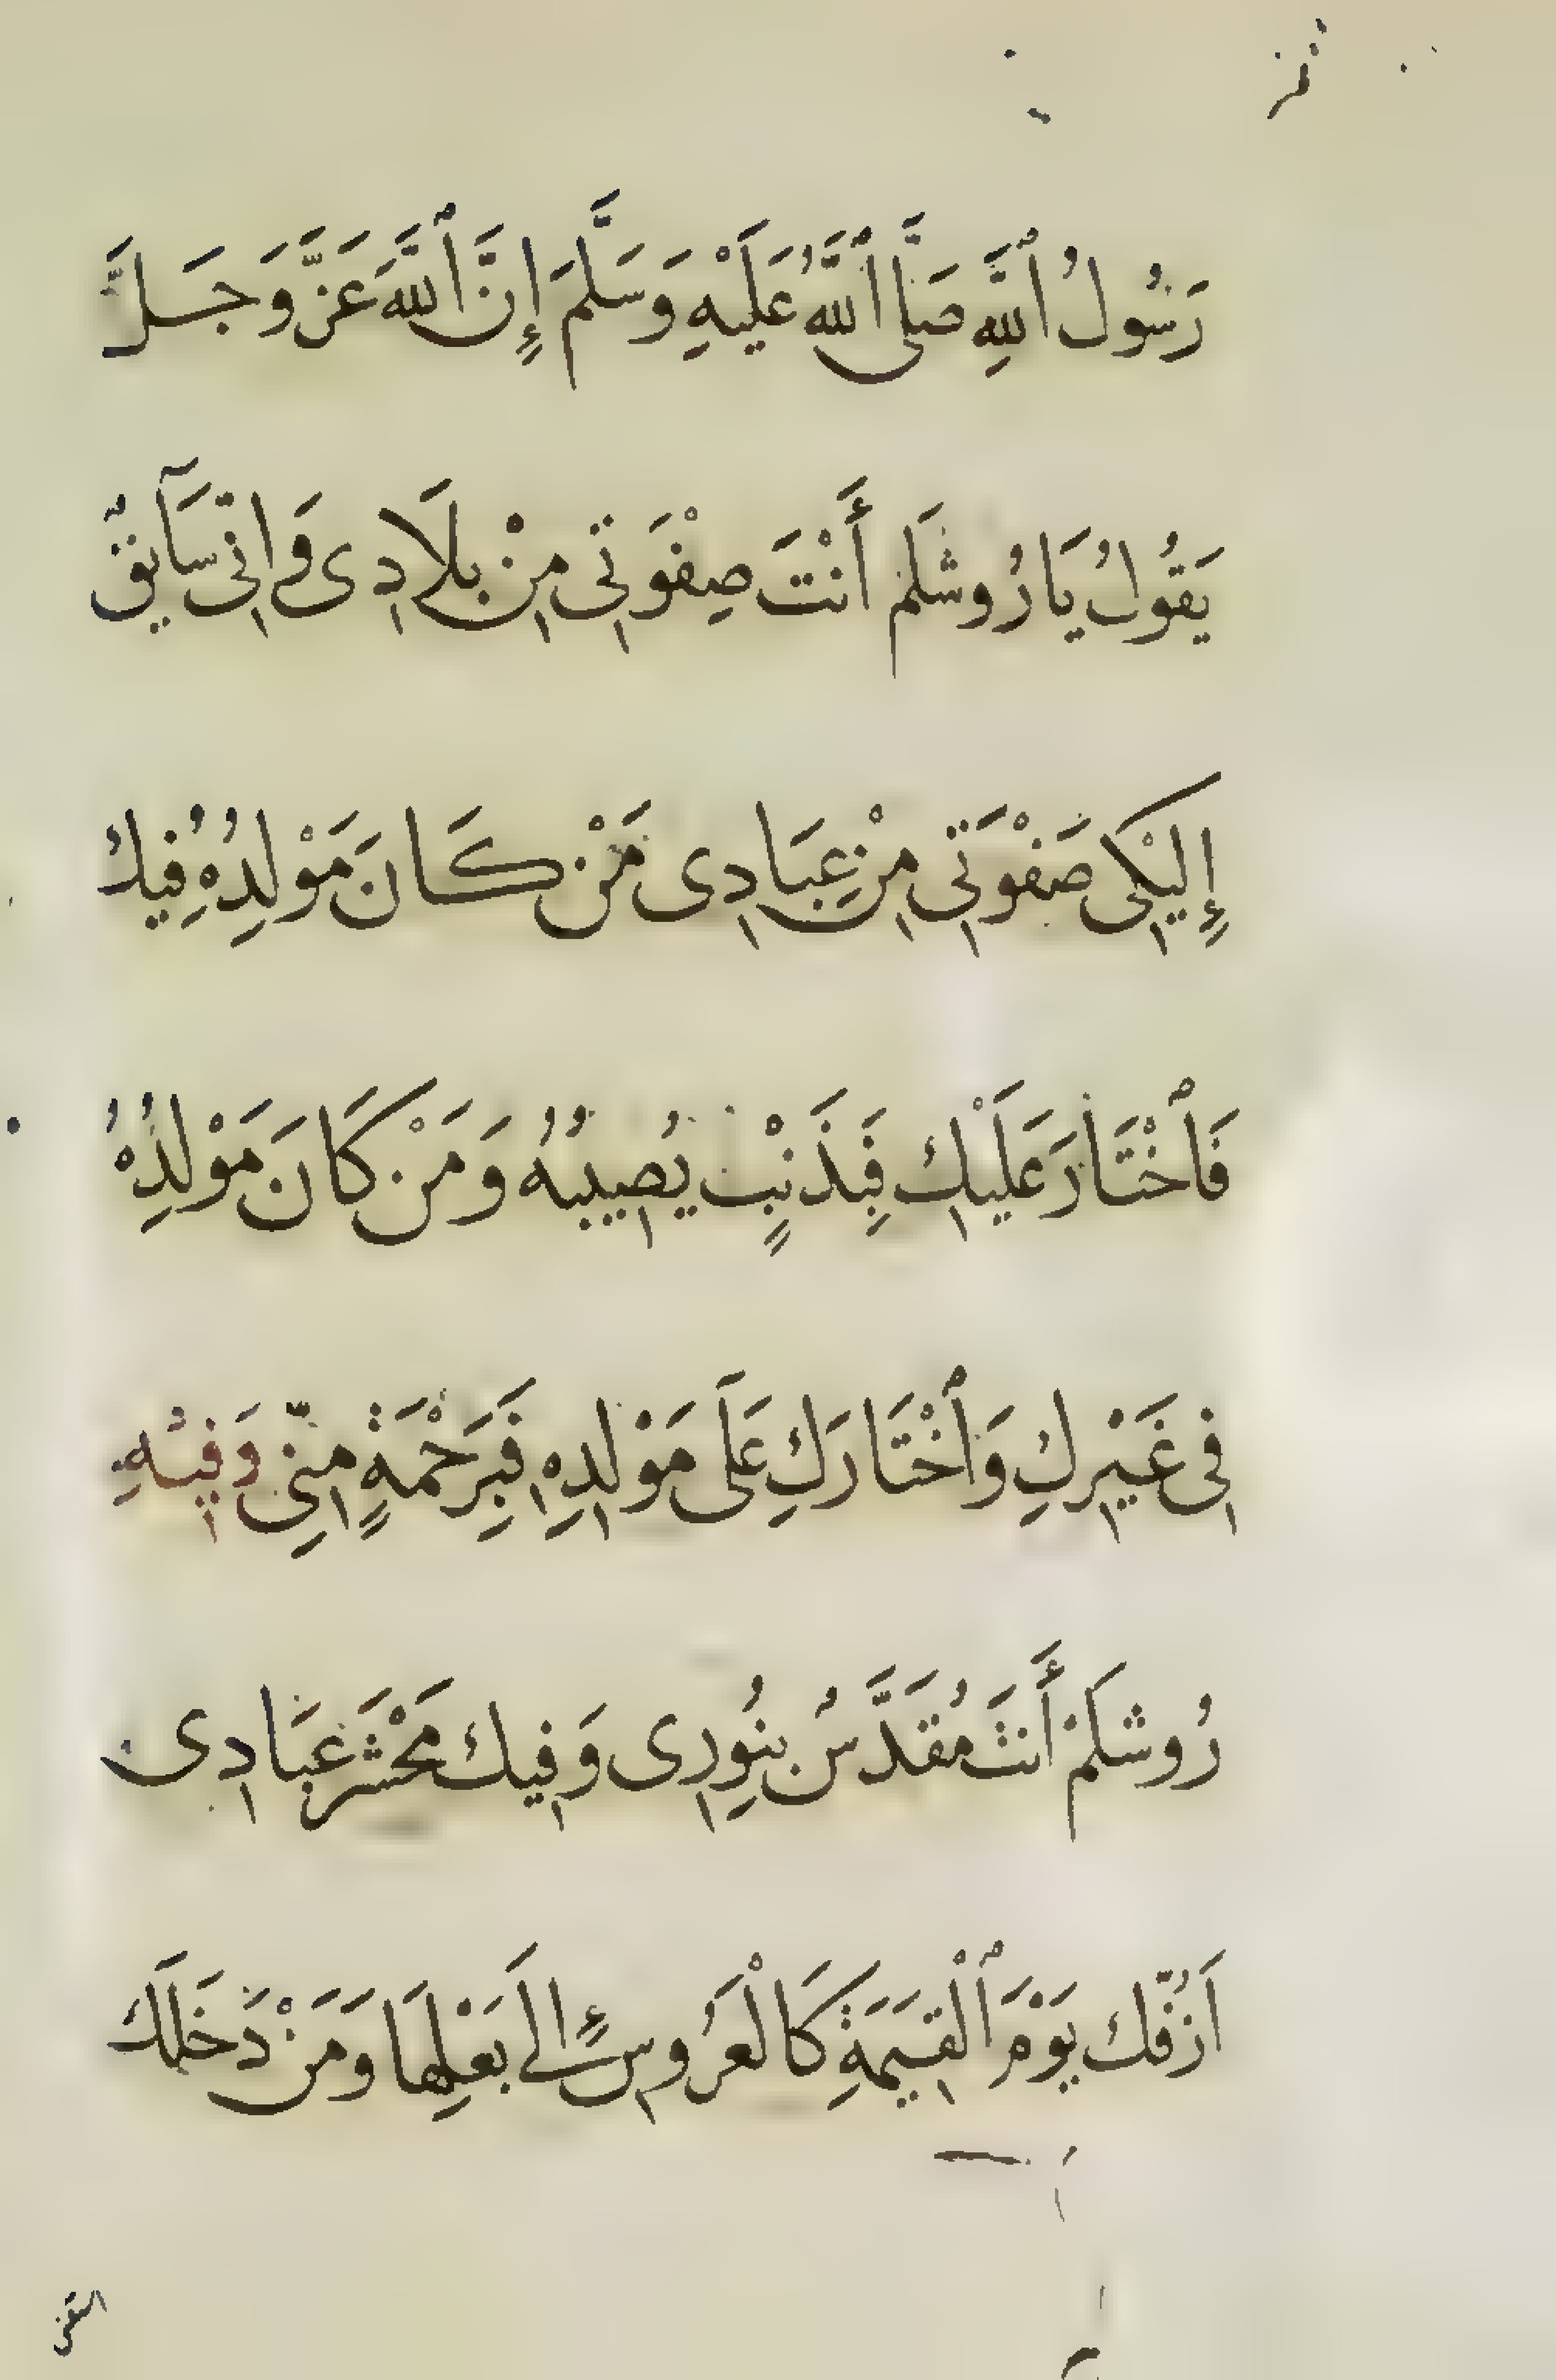 رَسُولُ ٱللَّهِ صَلَّى ٱللَّهُ عَلَيْهِ وَسَلَّمَ إِنَّ ٱللَّهَ عَزَّ وَجَلَّ
يَقُولُ يَا رُوشَلَم أَنْتَ صِفْوَتِى مِنْ بِلَادِى وَانِّى سَآئِقٌ
إِلَيْكِى صَفْوَتِى مِنْ عِبَادِى مَنْ كَانَ مَوْلِدُهُ فِيكِ
فَٱخْتَارَ عَلَيْكِ فَبِذَنْبٍ يُصِيبُهُ وَمَنْ كَانَ مَوْلِدُهُ
فِى غَيْرِكِ وَٱخْتَارَكِ عَلَى مَوْلِدِهِ فَبِرَحْمَةٍ مِنِّى وَفِيْهِ
رُوشَلَمْ أَنْتَ مُقَدَّسٌ بِنُورِى وَفِيكِ مَحْشَرُ عِبَادِى
اَزُفُّكِ يَوْمَ ٱلْقِيَمَةِ كَالْعَرُوسِ إِلَى بَعْلِهَا وَمَنْ دَخَلَكِ